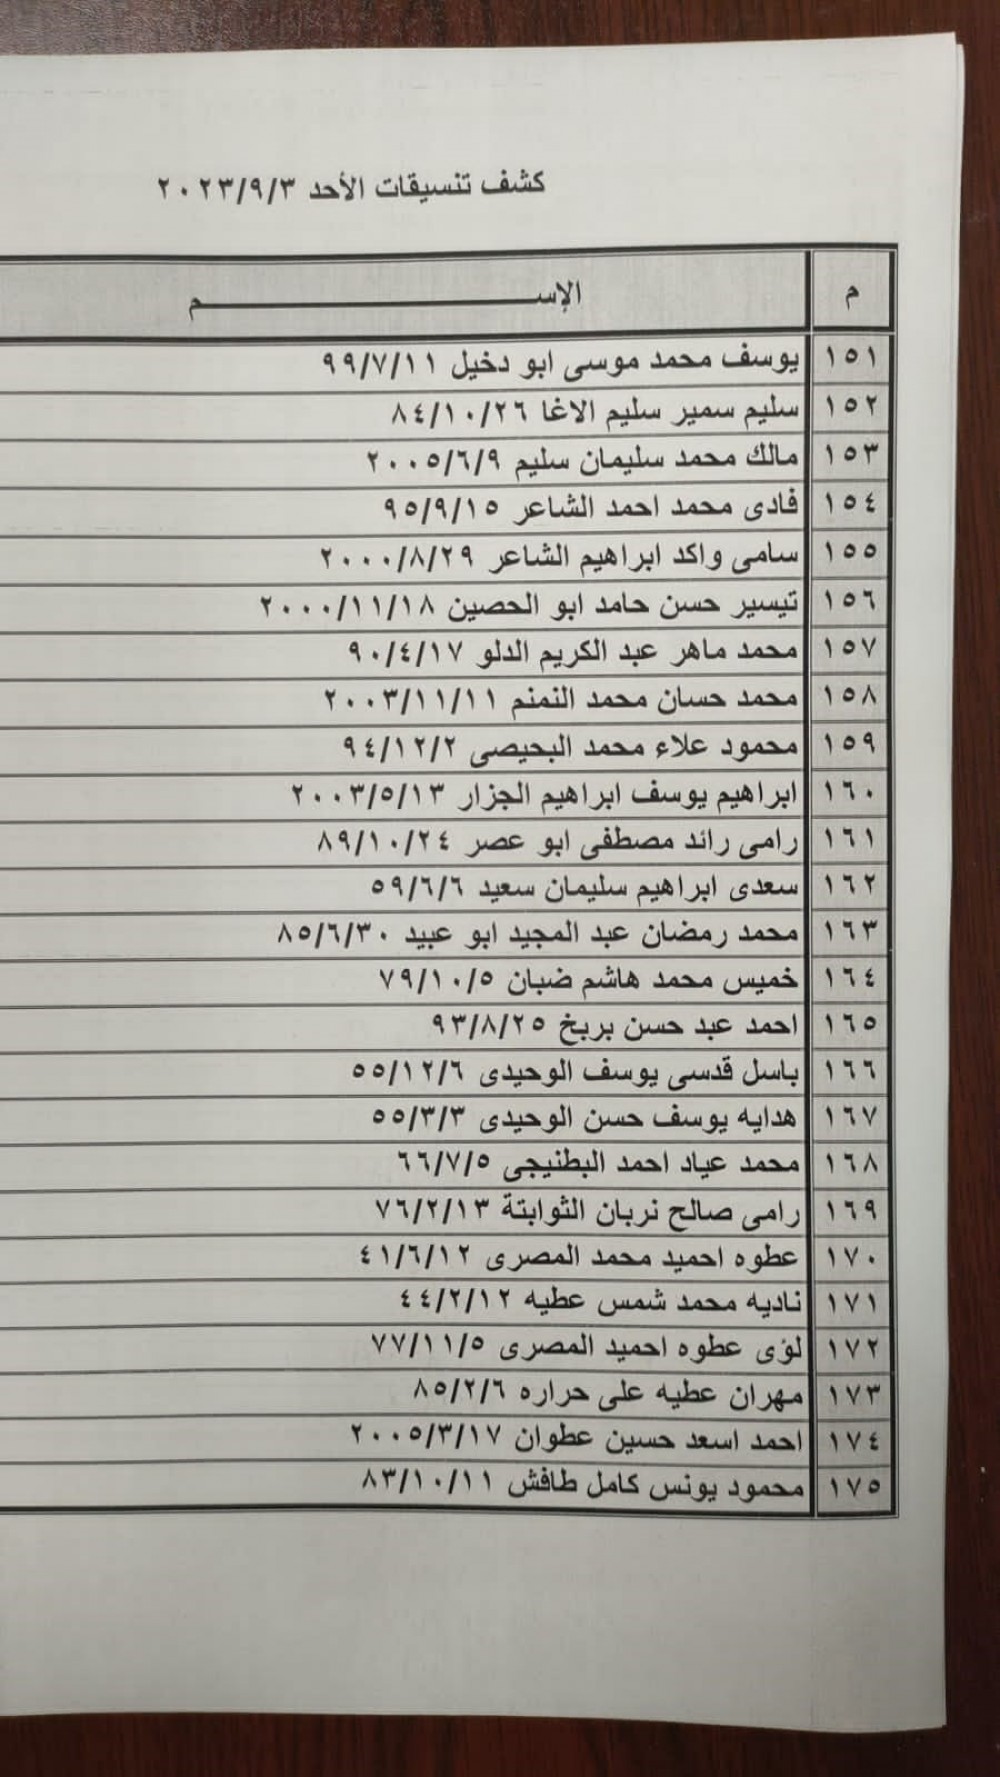 كشف تنسيقات الأحد ٢٠٢٣/٩/٣
م الإســـــــــــــم
١٥١ يوسف محمد موسى ابو دخيل ٩٩/٧/١١
١٥٢ سليم سمير سليم الاغا ٨٤/١٠/٢٦
١٥٣ مالك محمد سليمان سليم ٢٠٠٥/٦/٩
١٥٤ فادى محمد احمد الشاعر ٩٥/٩/١٥
١٥٥ سامى واكد ابراهيم الشاعر ٢٠٠٠/٨/٢٩
١٥٦ تيسير حسن حامد ابو الحصين ٢٠٠٠/١١/١٨
١٥٧ محمد ماهر عبد الكريم الدلو ٩٠/٤/١٧
١٥٨ محمد حسان محمد النمنم ٢٠٠٣/١١/١١
١٥٩ محمود علاء محمد البحيصى ٩٤/١٢/٢
١٦٠ ابراهيم يوسف ابراهيم الجزار ٢٠٠٣/٥/١٣
١٦١ رامى رائد مصطفى ابو عصر ٨٩/١٠/٢٤
١٦٢ سعدى ابراهيم سليمان سعيد ٥٩/٦/٦
١٦٣ محمد رمضان عبد المجيد ابو عبيد ٨٥/٦/٣٠
١٦٤ خميس محمد هاشم ضبان ٧٩/١٠/٥
١٦٥ احمد عبد حسن بربخ ٩٣/٨/٢٥
١٦٦ باسل قدسى يوسف الوحيدى ٥٥/١٢/٦
١٦٧ هدايه يوسف حسن الوحيدى ٥٥/٣/٣
١٦٨ محمد عياد احمد البطنيجى ٦٦/٧/٥
١٦٩ رامى صالح نربان الثوابتة ٧٦/٢/١٣
١٧٠ عطوه احميد محمد المصرى ٤١/٦/١٢
١٧١ ناديه محمد شمس عطيه ٤٤/٢/١٢
١٧٢ لؤى عطوه احميد المصرى ٧٧/١١/٥
١٧٣ مهران عطيه على حراره ٨٥/٢/٦
١٧٤ احمد اسعد حسين عطوان ٢٠٠٥/٣/١٧
١٧٥ محمود يونس كامل طافش ٨٣/١٠/١١